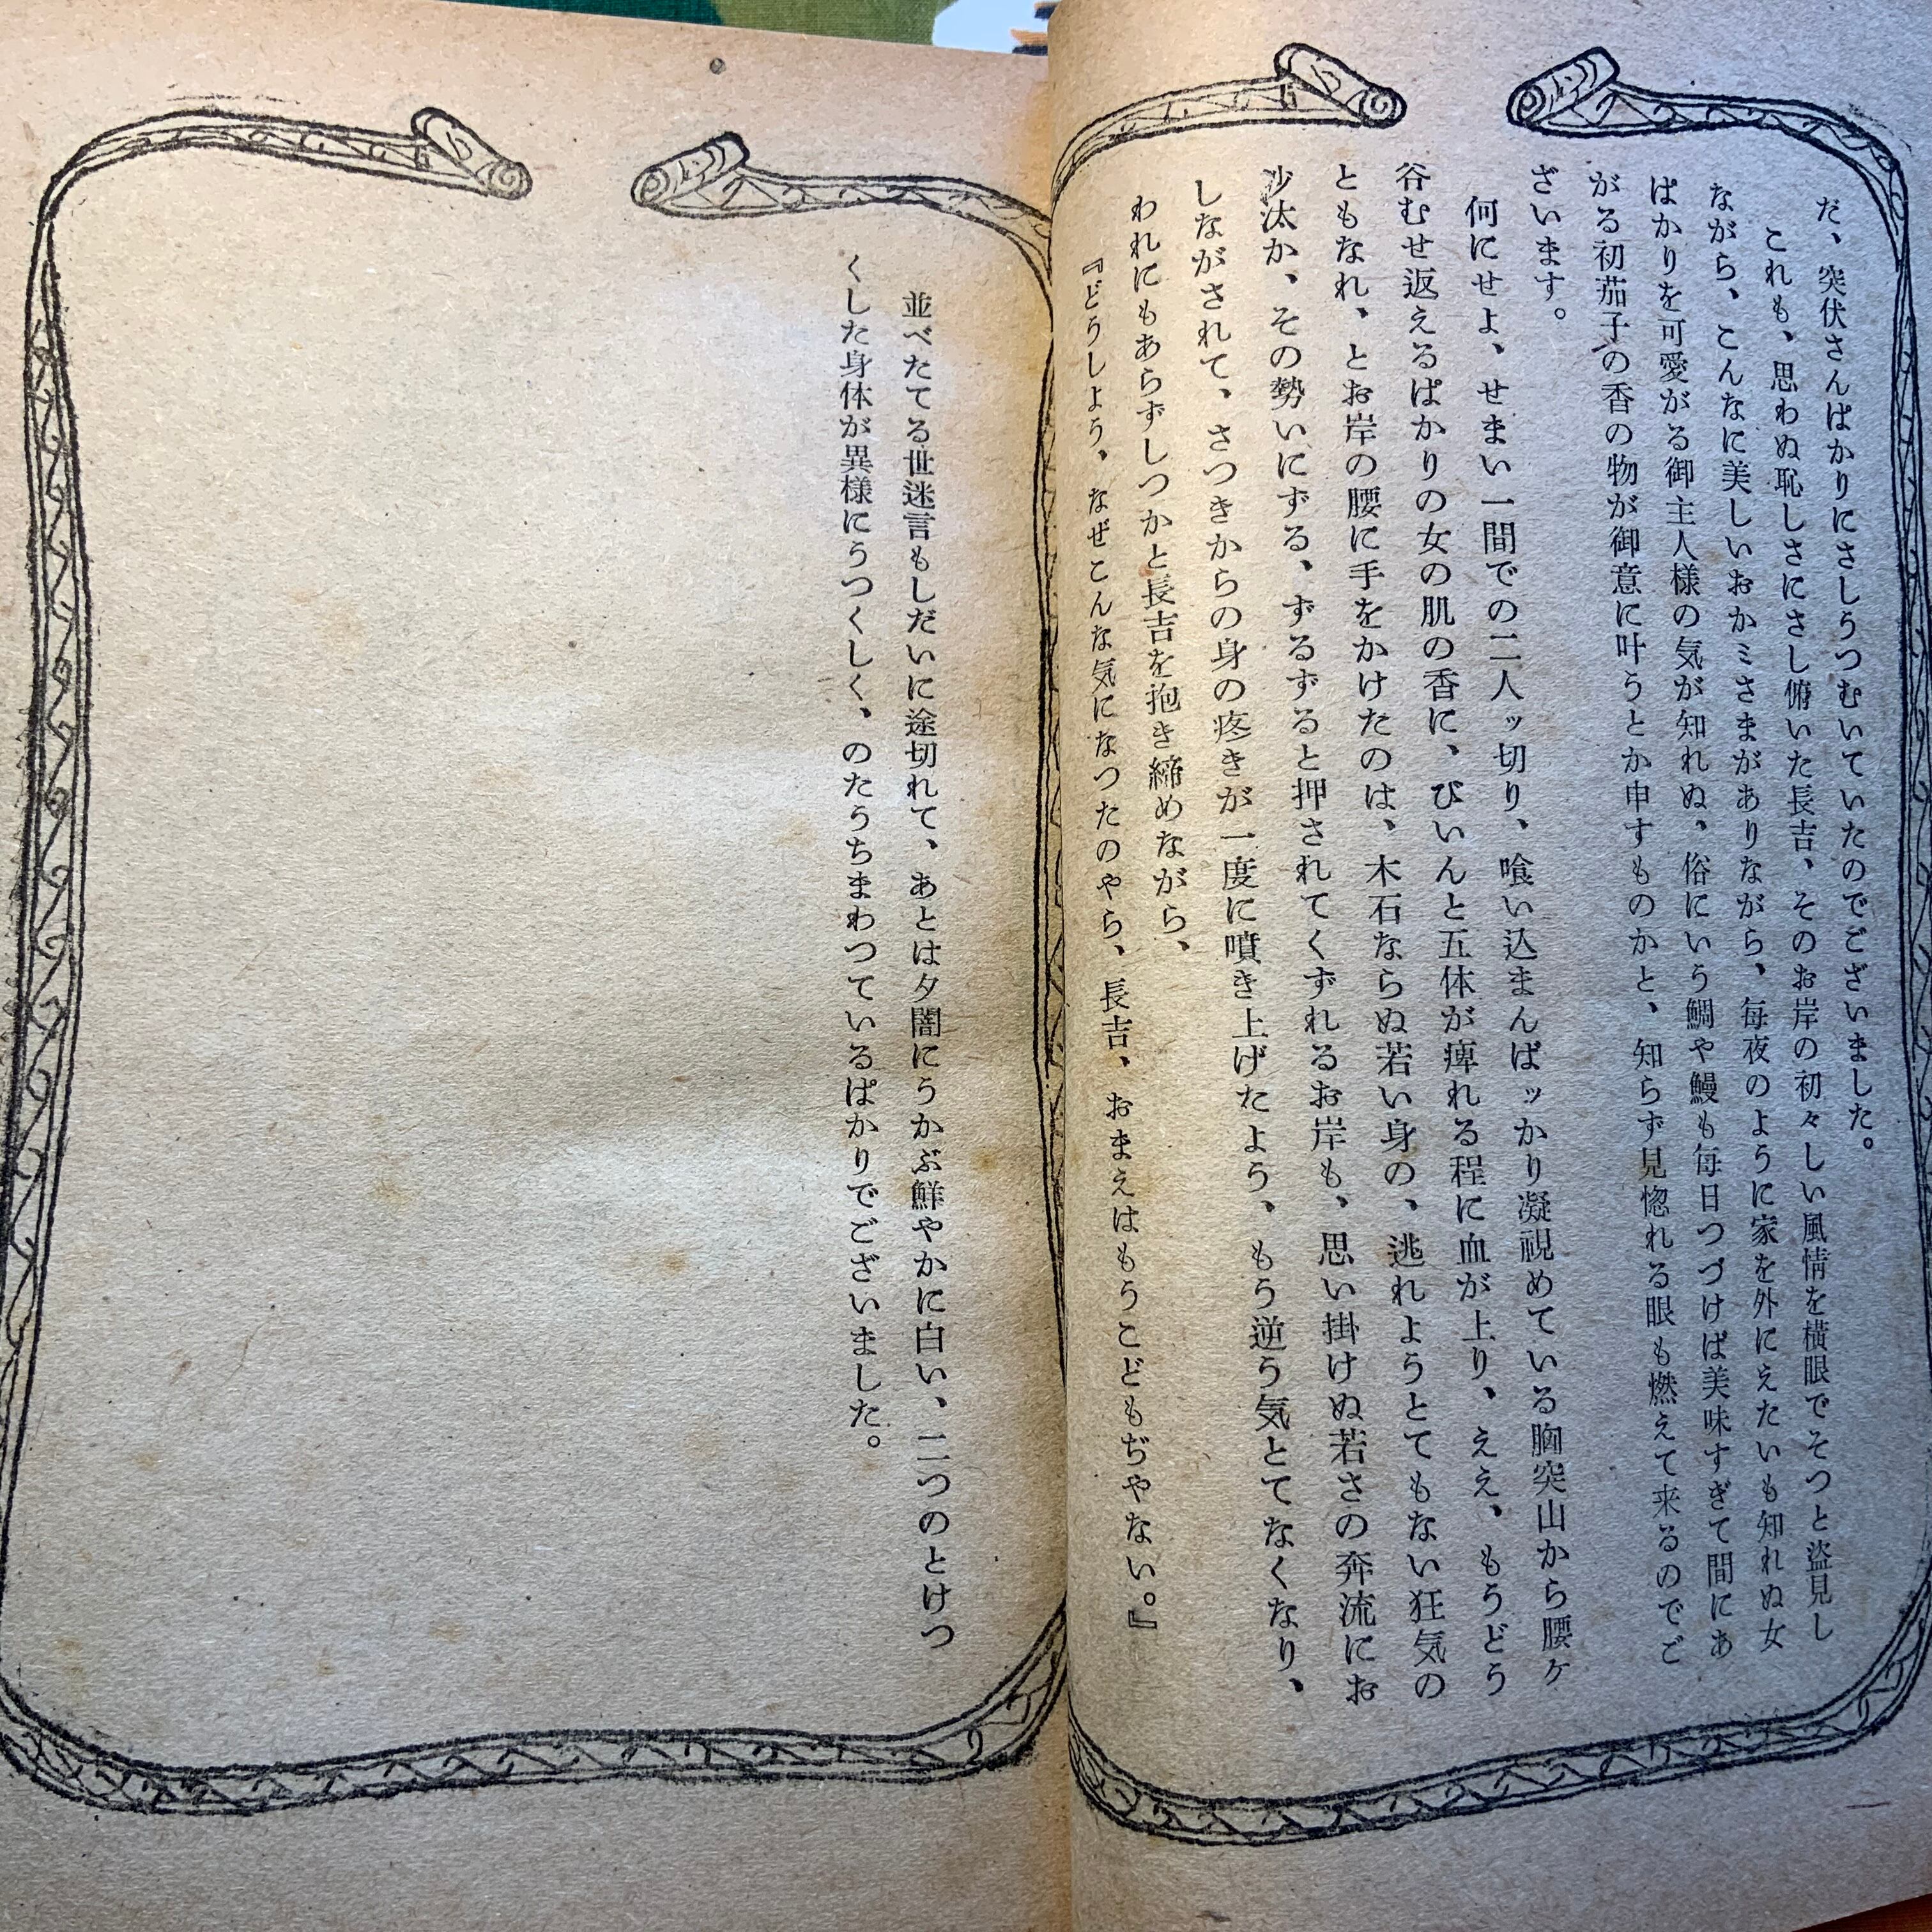 だ、突伏さんばかりにさしうつむいていたのでございました。
これも、思わぬ恥しさにさし俯いた長吉、そのお岸の初々しい風情を横眼でそつと盗見し
ながら、こんなに美しいおかミさまがありながら、毎夜のように家を外にえたいも知れぬ女
ばかりを可愛がる御主人様の気が知れぬ、俗にいう鯛や鰻も毎日つづけば美味すぎて間にあ
がる初茄子の香の物が御意に叶うとか申すものかと、知らず見惚れる眼も燃えて来るのでご
ざいます。
何にせよ、せまい一間での二人ッ切り、喰い込まんばッかり凝視めている胸突山から腰ヶ
谷むせ返えるばかりの女の肌の香に、びいんと五体が痺れる程に血が上り、ええ、もうどう
ともなれ、とお岸の腰に手をかけたのは、木石ならぬ若い身の、逃れようとてもない狂気の
沙汰か、その勢いにずる、ずるずると押されてくずれるお岸も、思い掛けぬ若さの奔流にお
しながされて、さつきからの身の疼きが一度に噴き上げたよう、もう逆う気とてなくなり、
われにもあらずしつかと長吉を抱き締めながら、
『どうしよう、なぜこんな気になつたのやら、長吉、おまえはもうこどもぢやない。』
並べたてる世迷言もしだいに途切れて、あとは夕闇にうかぶ鮮やかに白い、二つのとけつ
くした身体が異様にうつくしく、のたうちまわつているばかりでございました。